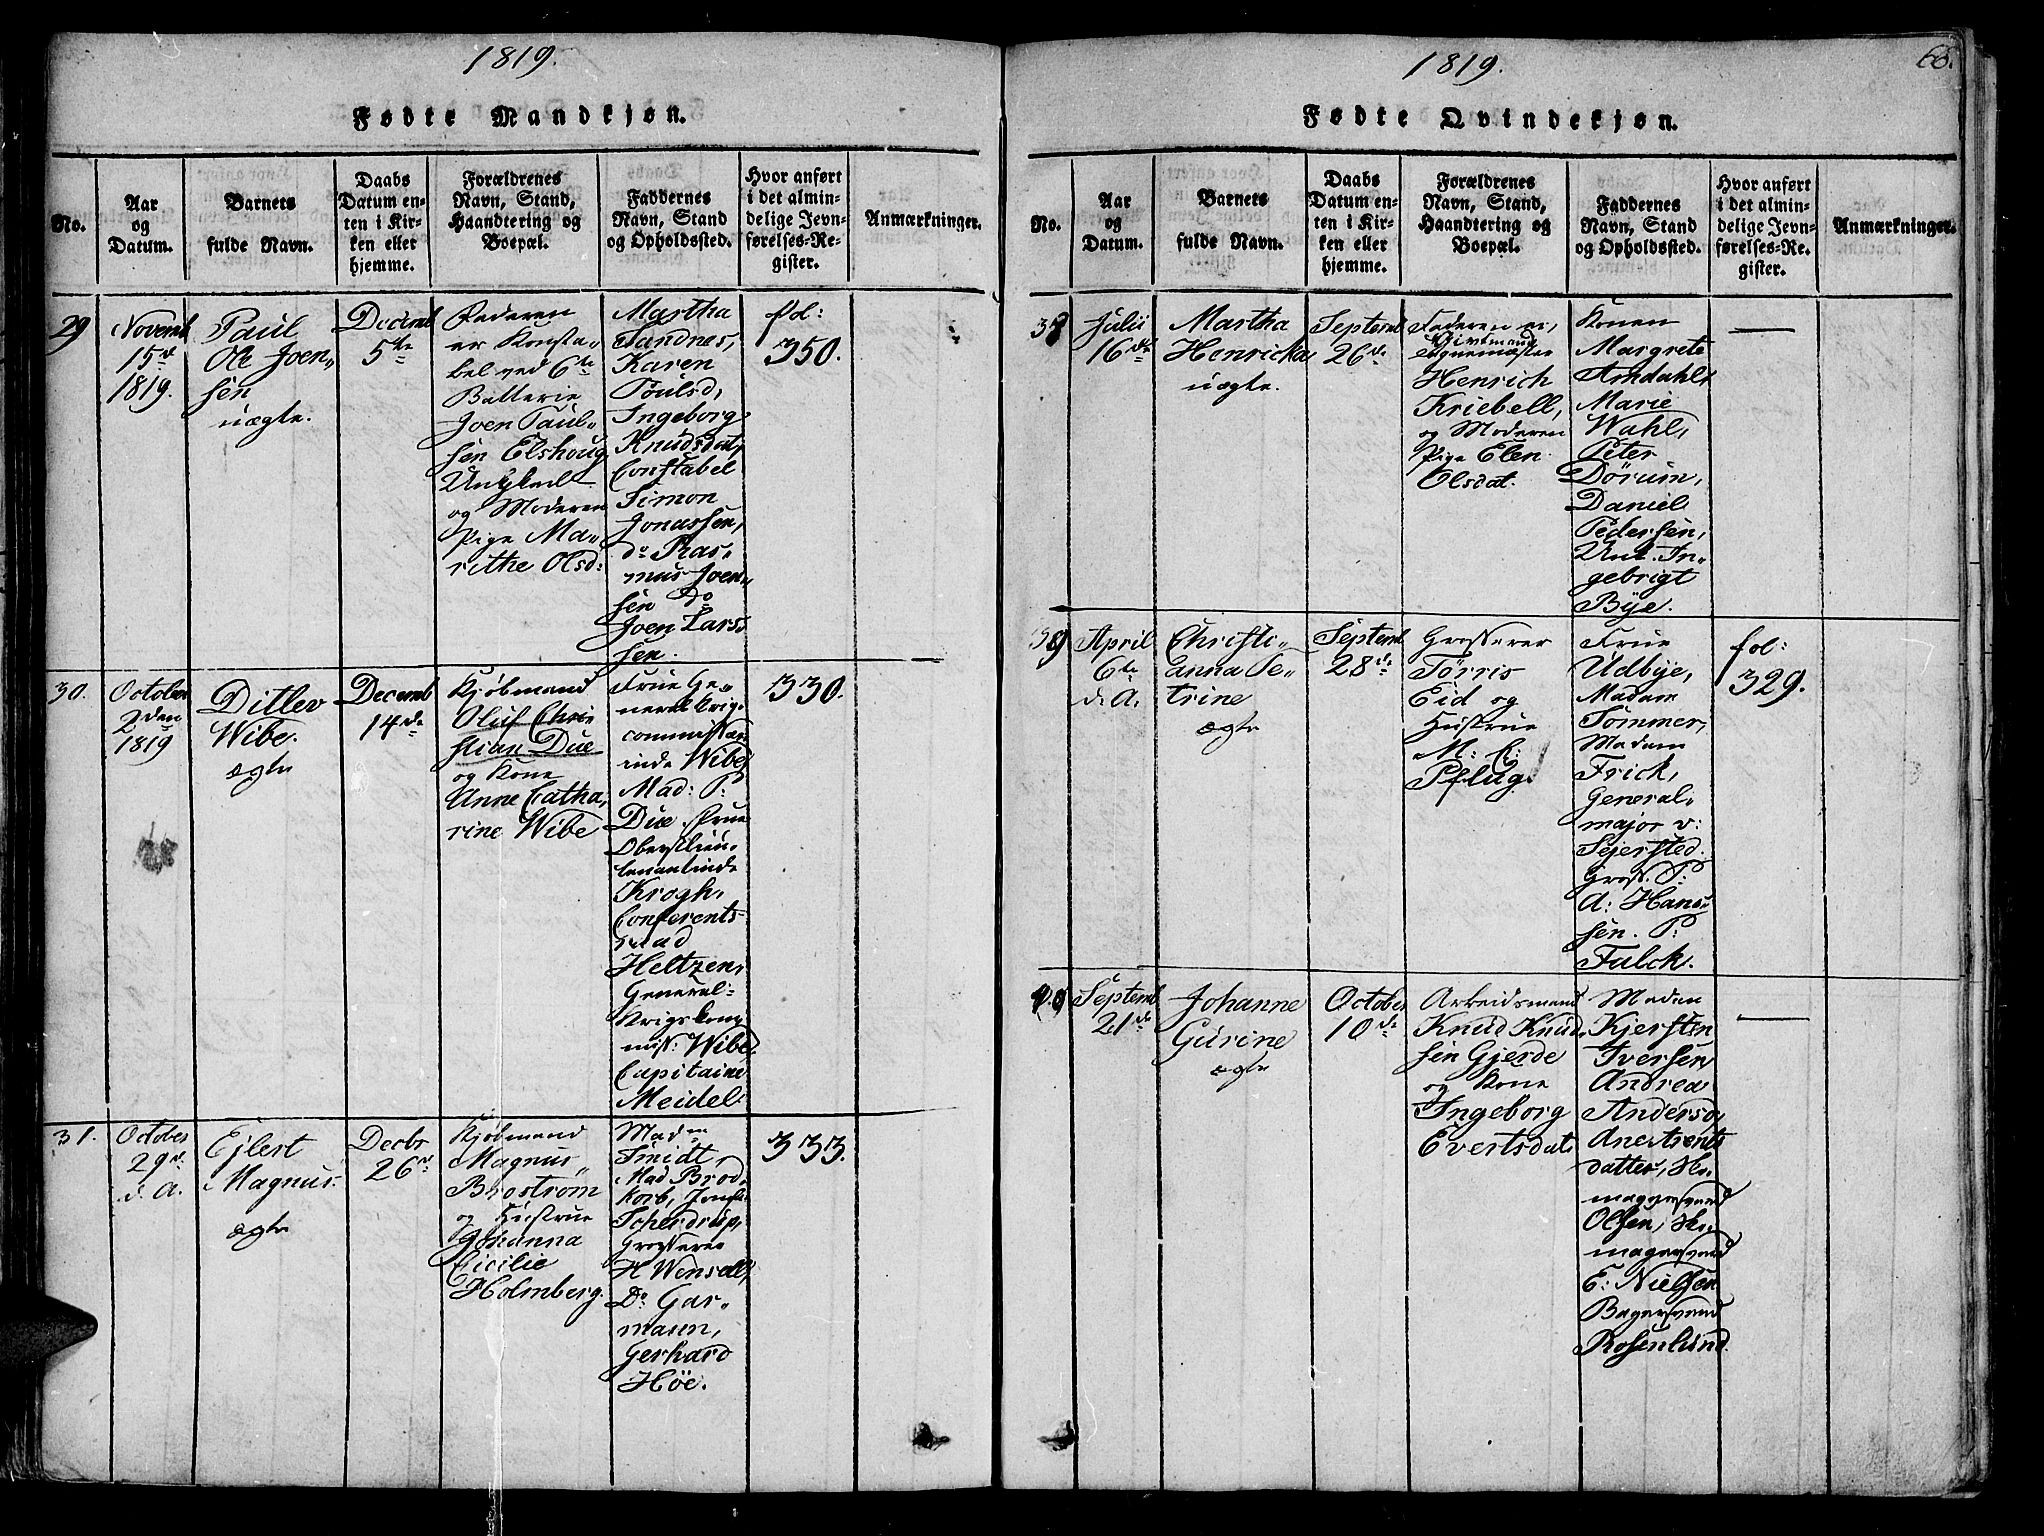 1819.
Fødte Mandkjøn.
No.
Aar
og
Datum.
Barnets
fulde Navn.
Daabs
Datum en-
ten i Kir-
ken eller
hjemme.
Forældrenes
Navn, Stand,
Haandtering og
Boepæl.
Faddernes
Navn, Stand
og Opholdssted.
Hvor anført
i det almin-
delige Jevn-
førelses-Re-
gister.
Anmærkninger.
29
Novemb
15d
1819.
Paul
Ole Joen-
sen
uægte.
Decemb
5te
Faderen
er Konsta-
bel ved 6te
Batterie
Joen Paul-
sen Elshoug
og Moderen
Pige Ma-
rithe Olsd:
Martha
Sandnes,
Karen
Poulsd,
Ingeborg
Knudsdat,
Constabel
Simon
Jonassen,
do Ras-
mus Joen-
sen do
Joen Lars-
sen.
fol:
350.
30.
October
2den
1819
Ditlev
Wibe.
ægte
Decemb
14de
Kjøbmand
Oluf Chri-
stian Due
og Kone
Anne Catha-
rine Wibe
Frue Ge-
neral Krigs-
commissær-
inde Wibe,
Mad: P:
Due, Frue
Oberstlieu-
tenantinde
Krogh,
Conferents-
raad
Heltzen,
General-
Krigskom-
miss: Wibe,
Capitaine
Meidel.
330.
31.
October
29d
d. A.
Ejlert
Magnus.
ægte
Decbr
26d
Kjøbmand
Magnus
Broström
og Hustrue
Johanna
Cicilie
Holmberg.
Madm
Smidt,
Mad Brod-
korb, Jomfr.
Scherdrup,
Grosserer
H Wensell,
Do: Gar-
masen,
Gerhard
Höe.
333.
1819.
68.
Fødte Qvindekjøn.
No.
Aar
og
Datum.
Barnets
fulde Navn.
Daabs
Datum en-
ten i Kir-
ken eller
hjemme.
Forældrenes
Navn, Stand,
Haandtering og
Boepæl.
Faddernes
Navn, Stand
og Opholdssted.
Hvor anført
i det almin-
delige Jevn-
førelses-Re-
gister.
Anmærkninger.
38
Julii
16de
Martha
Henricka
uægte.
Septemb
26d.
Faderen er,
Givtmand
Henrich
Kriebell,
og Moderen
Pige Elen
Olsdat.
Konen
Margrete
Arndahl,
Marie
Wahl,
Peter
Dørum,
Daniel
Pedersen,
Unt. In-
gebrigt
Bye.
39
April
6te
d. A.
Christi-
anna Pe-
trine
ægte
Septemb
28de
Grosserer
Tørris
Eid og
Hustrue
M: C:
Pflug.
Frue
Udbye,
Madam
Sommer,
Madam
Frick,
General-
major v:
Sejersted.
Gross. P:
A: Hans-
sen. P:
Falck.
fol:
329.
40
Septemb
21de
Johanne
Gurine
ægte
October
10de
Arbeidsmand
Knud Knud-
sen Gjerde
og Kone
Ingeborg
Evertsdat
Madam
Kjersten
Iversen,
Andrea
Andersd,
Ane Arents
datter, Sko-
magersvend
Olsen, Sko-
magersvend
E: Nielsen
Bagersvend
Rosenlund.